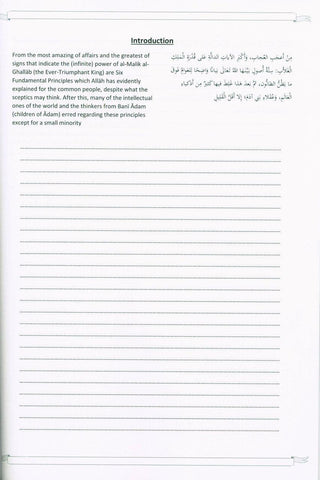 Introduction
From the most amazing of affairs and the greatest of
signs that indicate the (infinite) power of al-Malik al-
Ghallāb (the Ever-Triumphant King) are Six
Fundamental Principles which Allāh has evidently
explained for the common people, despite what the
sceptics may think. After this, many of the intellectual
ones of the world and the thinkers from Banī Ādam
(children of Ādam) erred regarding these principles
except for a small minority
مِنْ أَعْجَبِ العُجَابِ، وَأَكْبَرِ الآيَاتِ الدَّالَّةِ عَلَى قُدْرَةِ المَلِكِ
الغَلَّابِ: سِتَّةُ أُصُولٍ بَيَّنَهَا اللهُ تَعَالَى بَيَانًا وَاضِحًا لِلْعَوَامِّ فَوْقَ
مَا يَظُنُّ الظَّانُّونَ، ثُمَّ بَعْدَ هَذَا غَلِطَ فِيهَا كَثِيرٌ مِنْ أَذْكِيَاءِ
العَالَمِ، وَعُقَلَاءِ بَنِي آدَمَ؛ إِلَّا أَقَلَّ القَلِيلِ